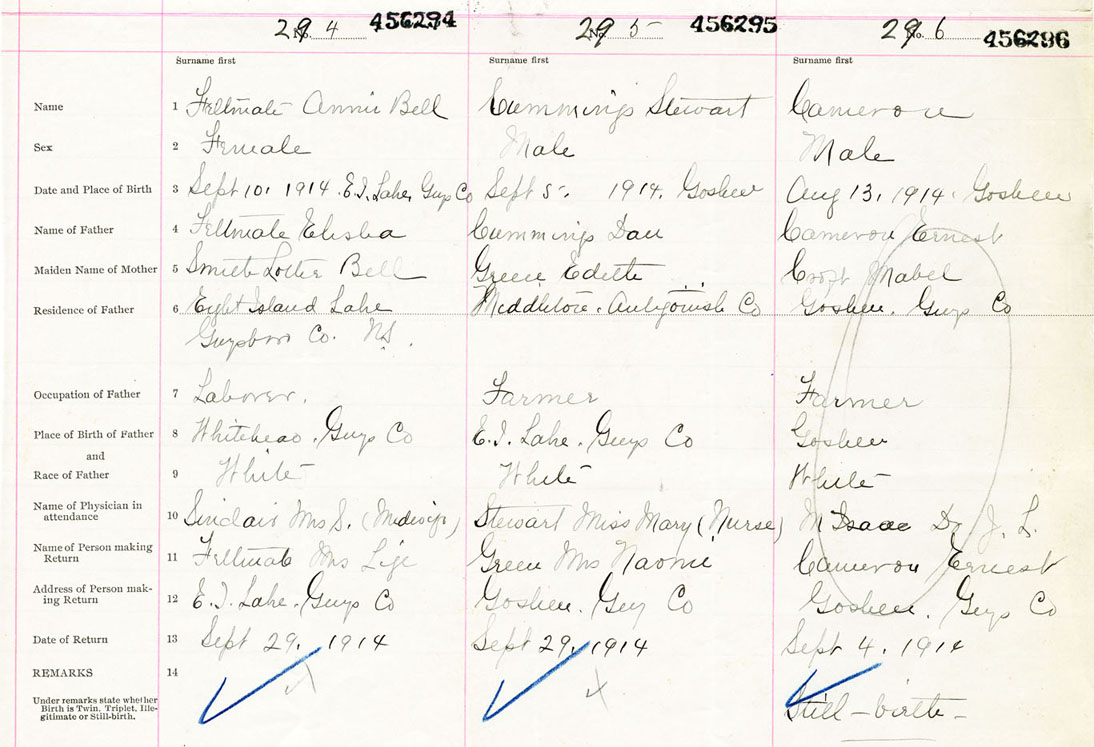 294 456294 295 456295 296 456296
Surname first Surname first Surname first
Name 1 Feltmate Annie Bell Cummings Stewart Cameron
Sex 2 Female Male Male
Date and Place of Birth 3 Sept 10, 1914. E.I. Lake, Guys Co Sept 5. 1914. Goshen Aug 13, 1914. Goshen
Name of Father 4 Feltmate Elisha Cummings Dan Cameron Ernest
Maiden Name of Mother 5 Lottie Bell Green Edith Croft Mabel
Residence of Father 6 Eight Island Lake Middleton. Antigonish Co Goshen. Guys Co
Guysboro Co. N.S.
Occupation of Father 7 Laborer. Farmer Farmer
Place of Birth of Father 8 Whitehead. Guys Co E.I. Lake. Guys Co Goshen
and
Race of Father 9 White White White
Name of Physician in
attendance 10 Sinclair Mrs S. (Midwife) Stewart Miss Mary (Nurse) McIsaac Dr J. L.
Name of Person making
Return 11 Feltmate Mrs Lije Green Mrs Naomi Cameron Ernest
Address of Person mak-
ing Return 12 E.I. Lake. Guys Co Goshen. Guy Co Goshen. Guys Co
Date of Return 13 Sept 29. 1914 Sept 29. 1914 Sept 4. 1914
REMARKS 14
Under remarks state whether
Birth is Twin, Triplet, Ille-
gitimate or Still-birth. Still-birth-